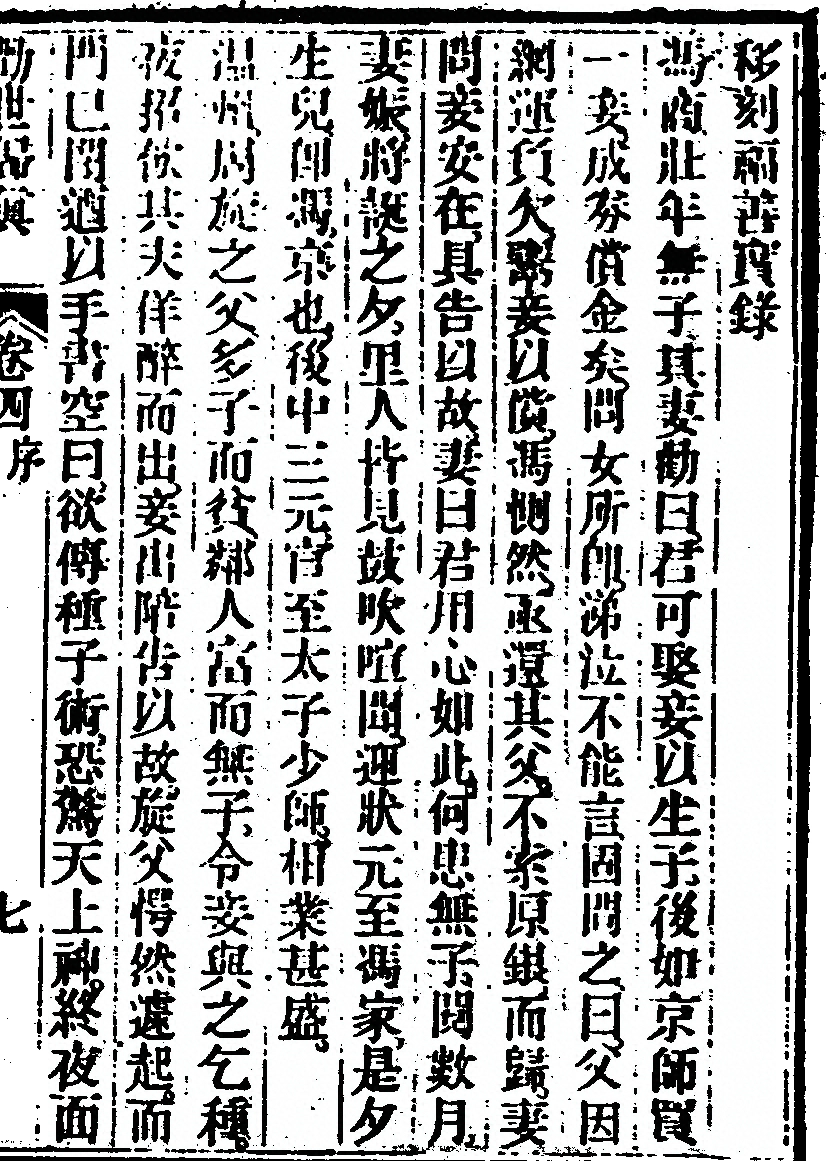 移刻福善寶錄
馮商壯年無子其妻勸曰君可娶妾以生子後如京師買
一妾成劵償金矣問女所自涕泣不能言固問之曰父因
綱運負欠鬻妾以償馮惻然亟還其父不索原銀而歸妻
問妾安在具告以故妻曰君用心如此何患無子閱數月
妻娠將誕之夕里人皆見鼓吹喧闐迎狀元至馮家是夕
生兒卽馮京也後中三元官至太子少師相業甚盛
温州周旋之父多子而貧鄰人富而無子令妾與之乞種
夜招飲其夫佯醉而出妾出陪告以故旋父愕然遽起而
門已閉遁以手書空曰欲傳種子術恐驚天上神終夜面
卷四 序
七